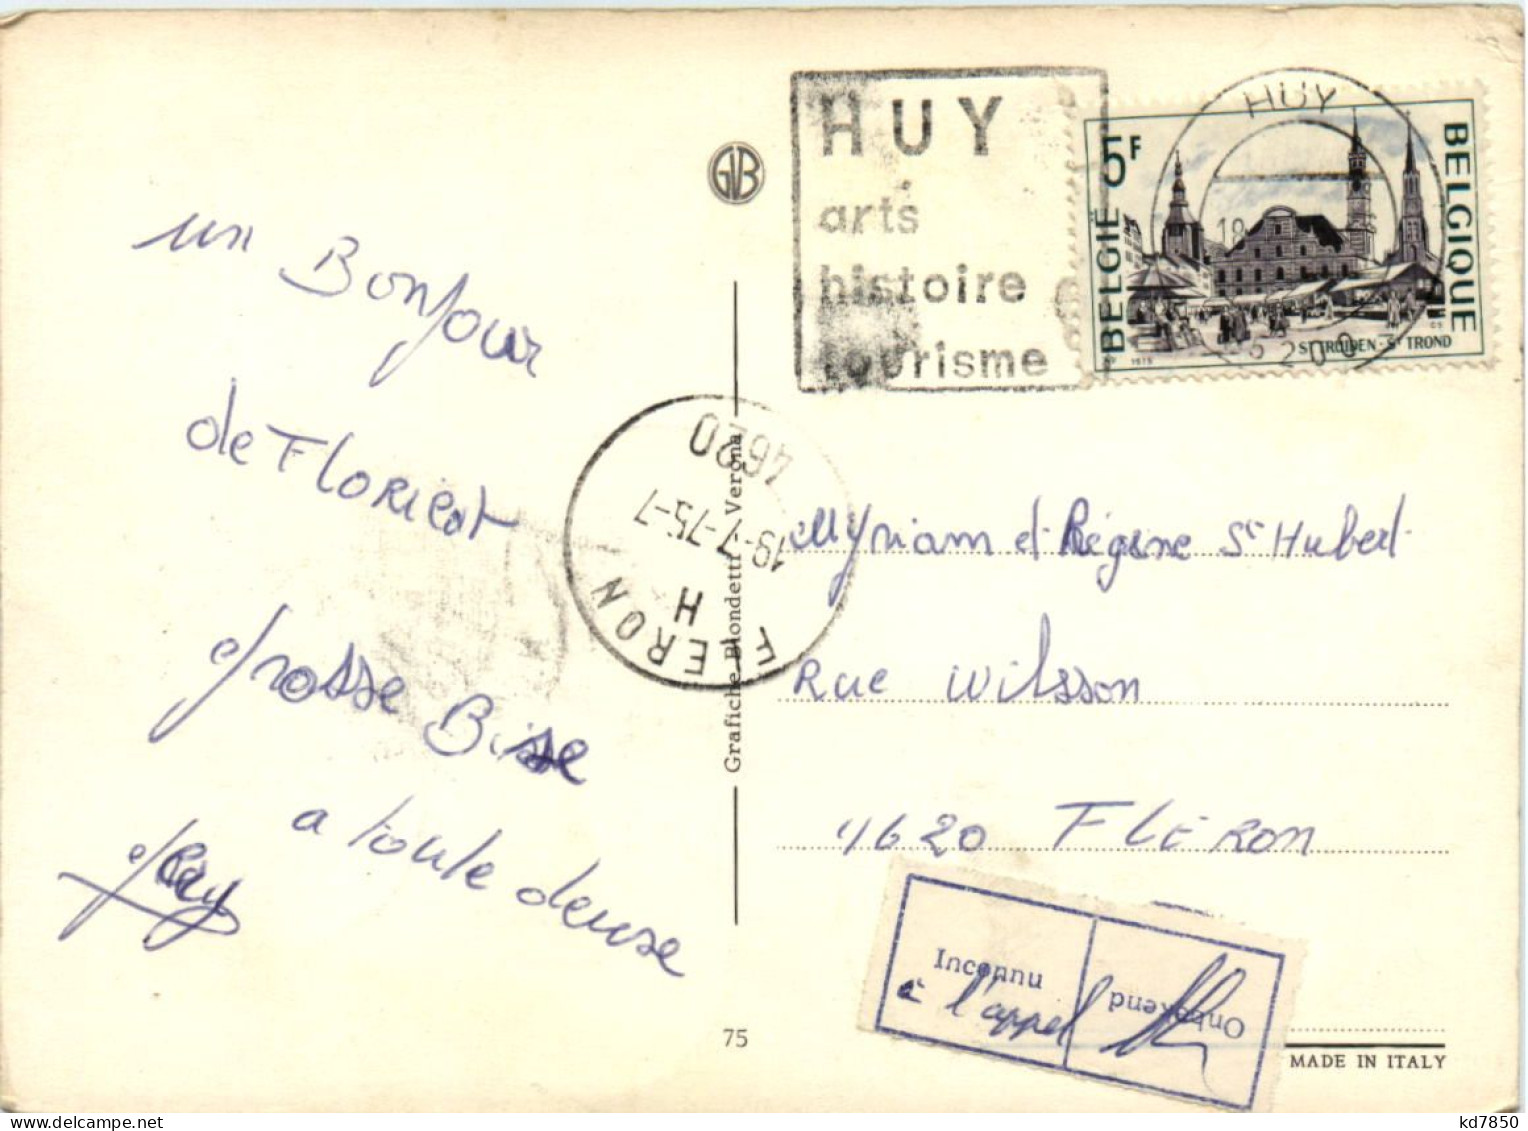 un Bonjour
de FLORICOT
grosse Bisse
a toute deuse
GVB
Grafiche Blondetti - Verona
75
HUY
arts
histoire
tourisme
HUY
18
5200
5F
BELGIË
BELGIQUE
ST TRUIDEN - ST TROND
1975
4620
19-7-75-7
H
FLERON
Myriam et Régine St Hubert
Rue Wilsson
4620 FLÉRON
Inconnu
à l'appel
Onbekend
MADE IN ITALY
kd7850